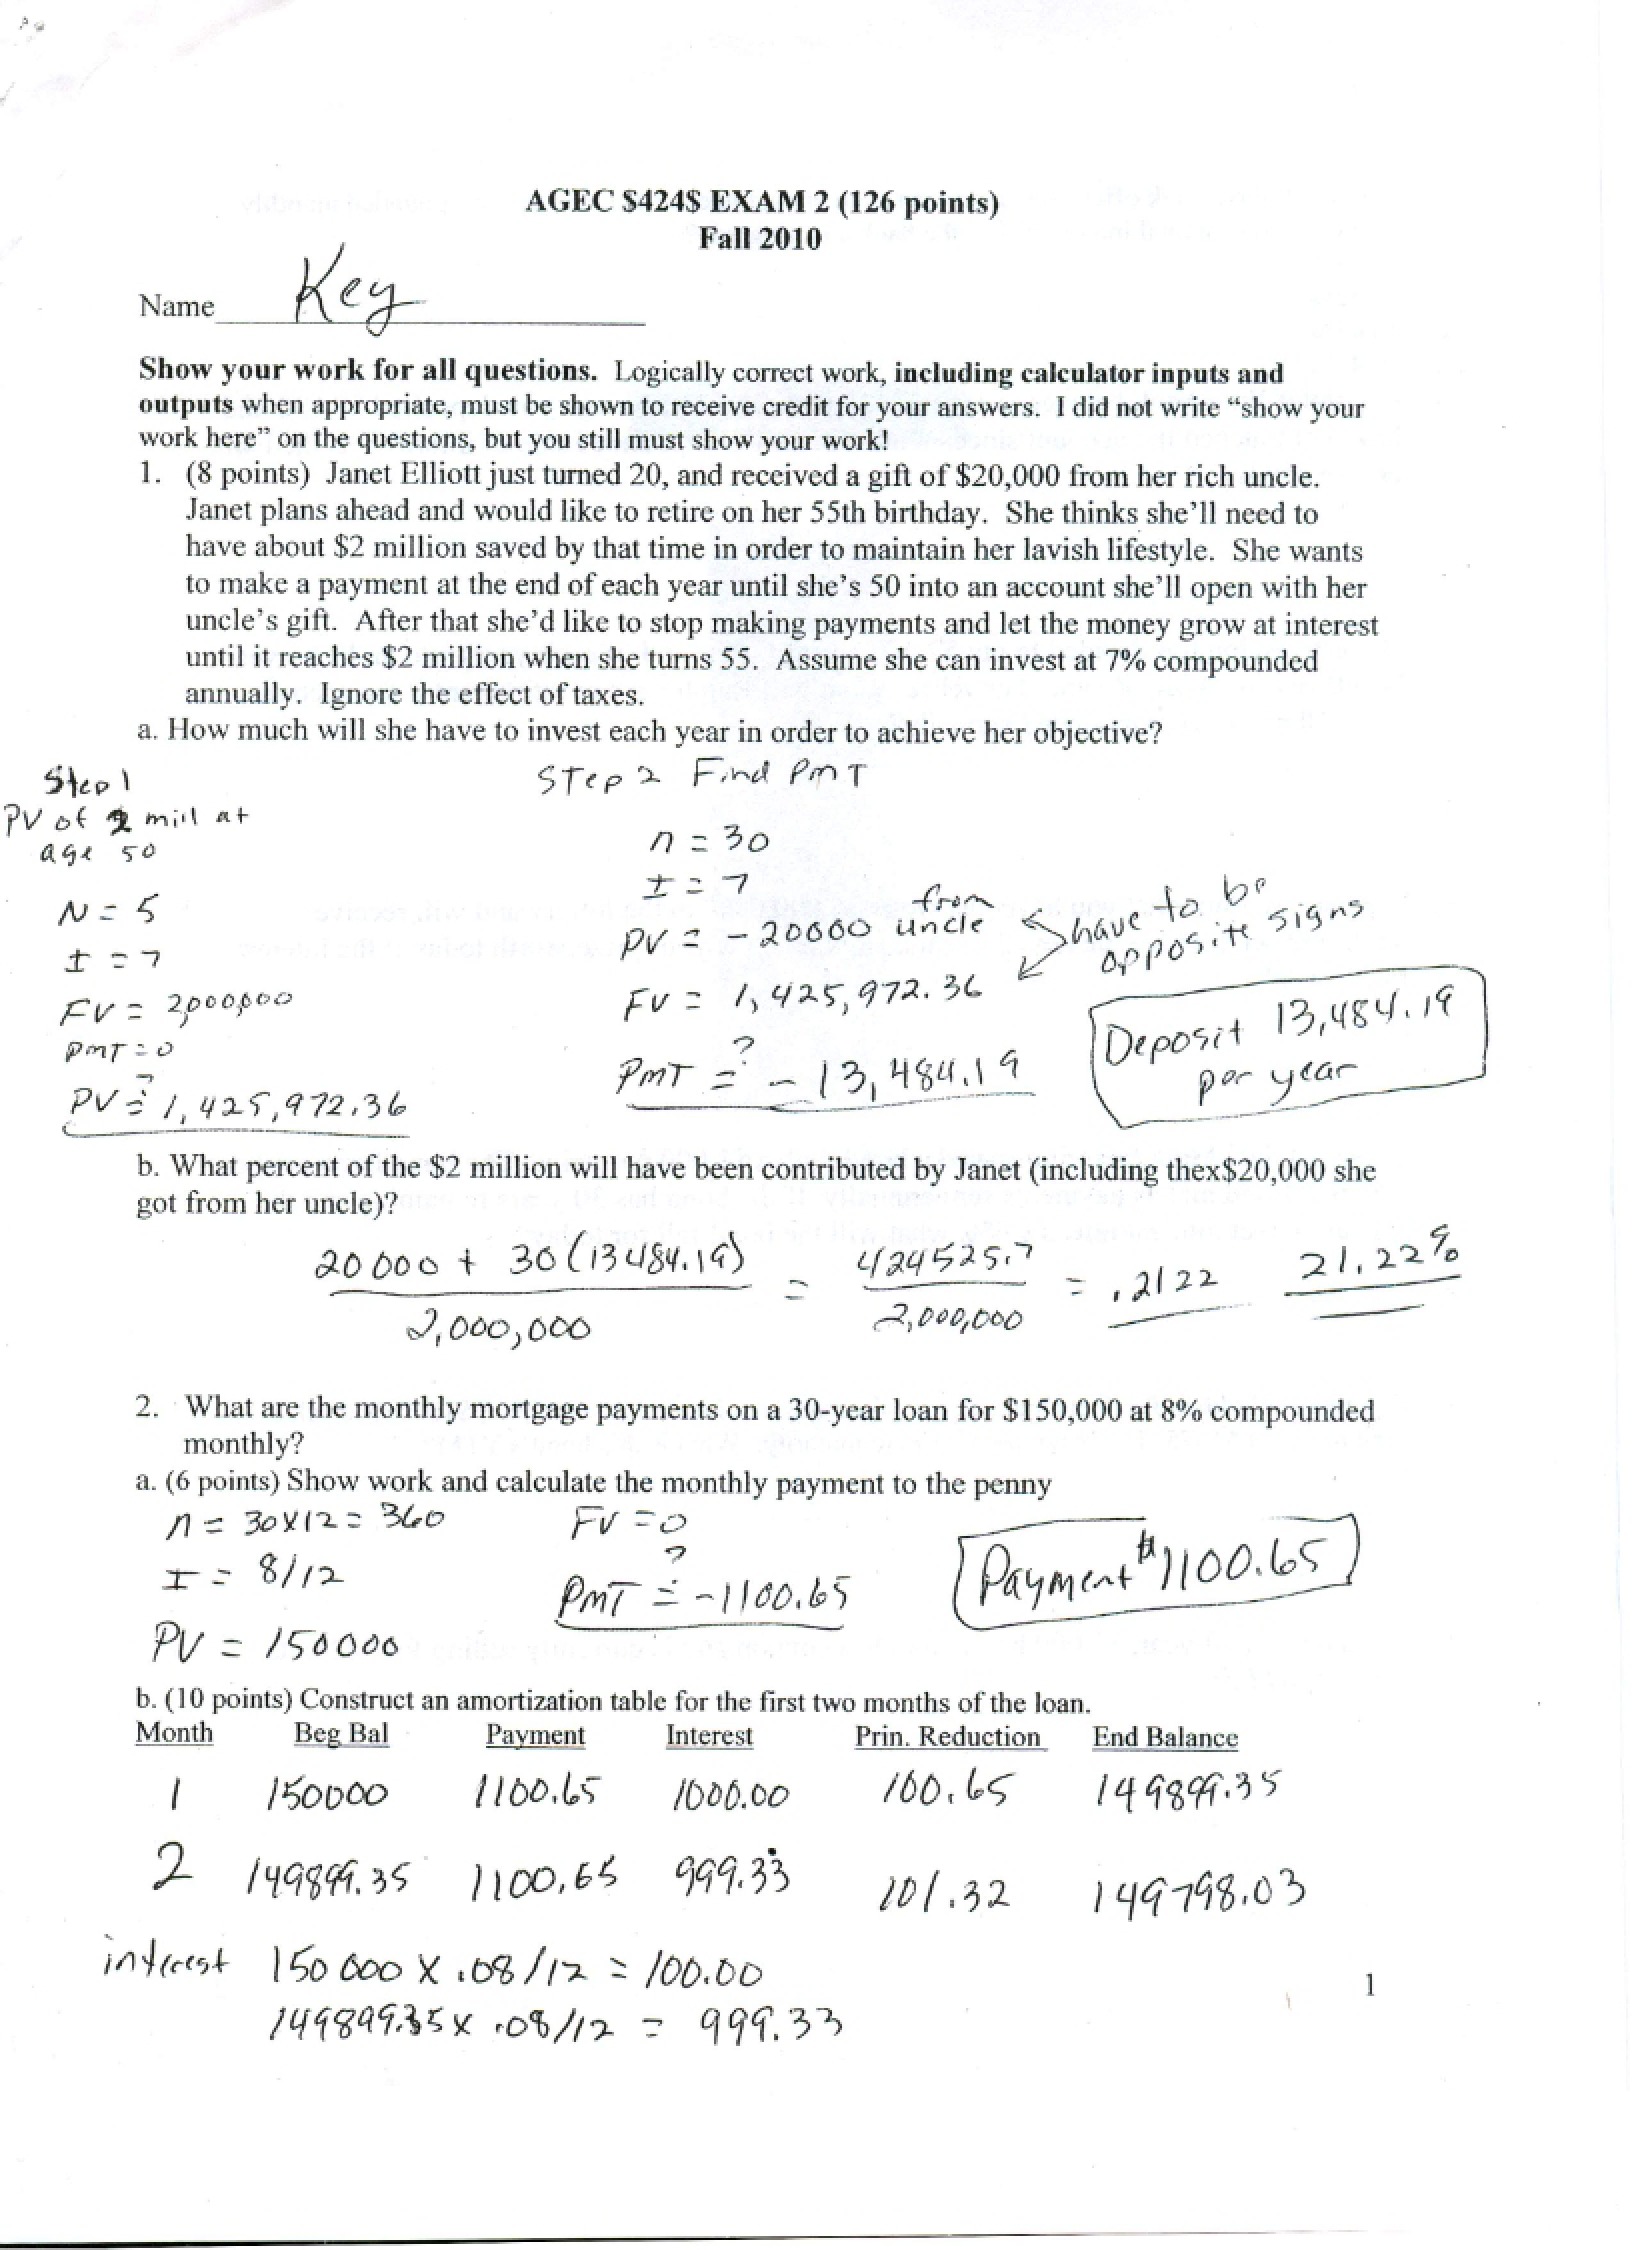 AGEC S424S EXAM 2 (126 points)
Fall 2010
Name Key
Show your work for all questions. Logically correct work, including calculator inputs and
outputs when appropriate, must be shown to receive credit for your answers. I did not write “show your
work here” on the questions, but you still must show your work!
1. (8 points) Janet Elliott just turned 20, and received a gift of $20,000 from her rich uncle.
Janet plans ahead and would like to retire on her 55th birthday. She thinks she’ll need to
have about $2 million saved by that time in order to maintain her lavish lifestyle. She wants
to make a payment at the end of each year until she’s 50 into an account she’ll open with her
uncle’s gift. After that she’d like to stop making payments and let the money grow at interest
until it reaches $2 million when she turns 55. Assume she can invest at 7% compounded
annually. Ignore the effect of taxes.
a. How much will she have to invest each year in order to achieve her objective?
Step 1
PV of 2 mill at
age 50
N = 5
I = 7
FV = 2,000,000
PMT = 0
?
PV = 1,425,972.36
STep 2 Find PMT
n = 30
I = 7
PV = -20000 from uncle
FV = 1,425,972.36
have to be
opposite signs
?
PMT = -13,484.19
Deposit 13,484.19
per year
b. What percent of the $2 million will have been contributed by Janet (including thex$20,000 she
got from her uncle)?
20000 + 30(13484.19) = 424525.7 = .2122 21.22%
2,000,000 2,000,000
2. What are the monthly mortgage payments on a 30-year loan for $150,000 at 8% compounded
monthly?
a. (6 points) Show work and calculate the monthly payment to the penny
n = 30x12 = 360
I = 8/12
PV = 150000
FV = 0
?
PMT = -1100.65
Payment $1100.65
b. (10 points) Construct an amortization table for the first two months of the loan.
Month Beg Bal Payment Interest Prin. Reduction End Balance
1 150000 1100.65 1000.00 100.65 149899.35
2 149899.35 1100.65 999.33 101.32 149798.03
interest 150000 x .08/12 = 100.00
149899.35 x .08/12 = 999.33
1